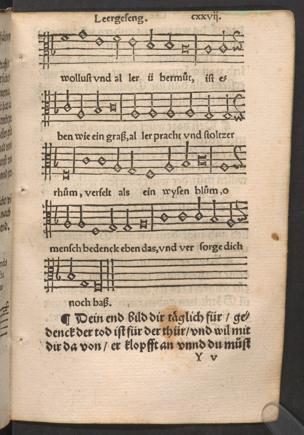 Leergeseng. cxxvij.
wollust vnd al ler ü bermůt, ist e-
ben wie ein graß, al ler pracht vnd stoltzer
rhům, verselt als ein wysen blům, o
mensch bedenck eben das, vnd ver sorge dich
noch baß.
¶ Dein end bild dir täglich für / ge-
denck der tod ist für der thür / vnd wil mit
dir da von / er klopfft an vnnd du můst
Y v